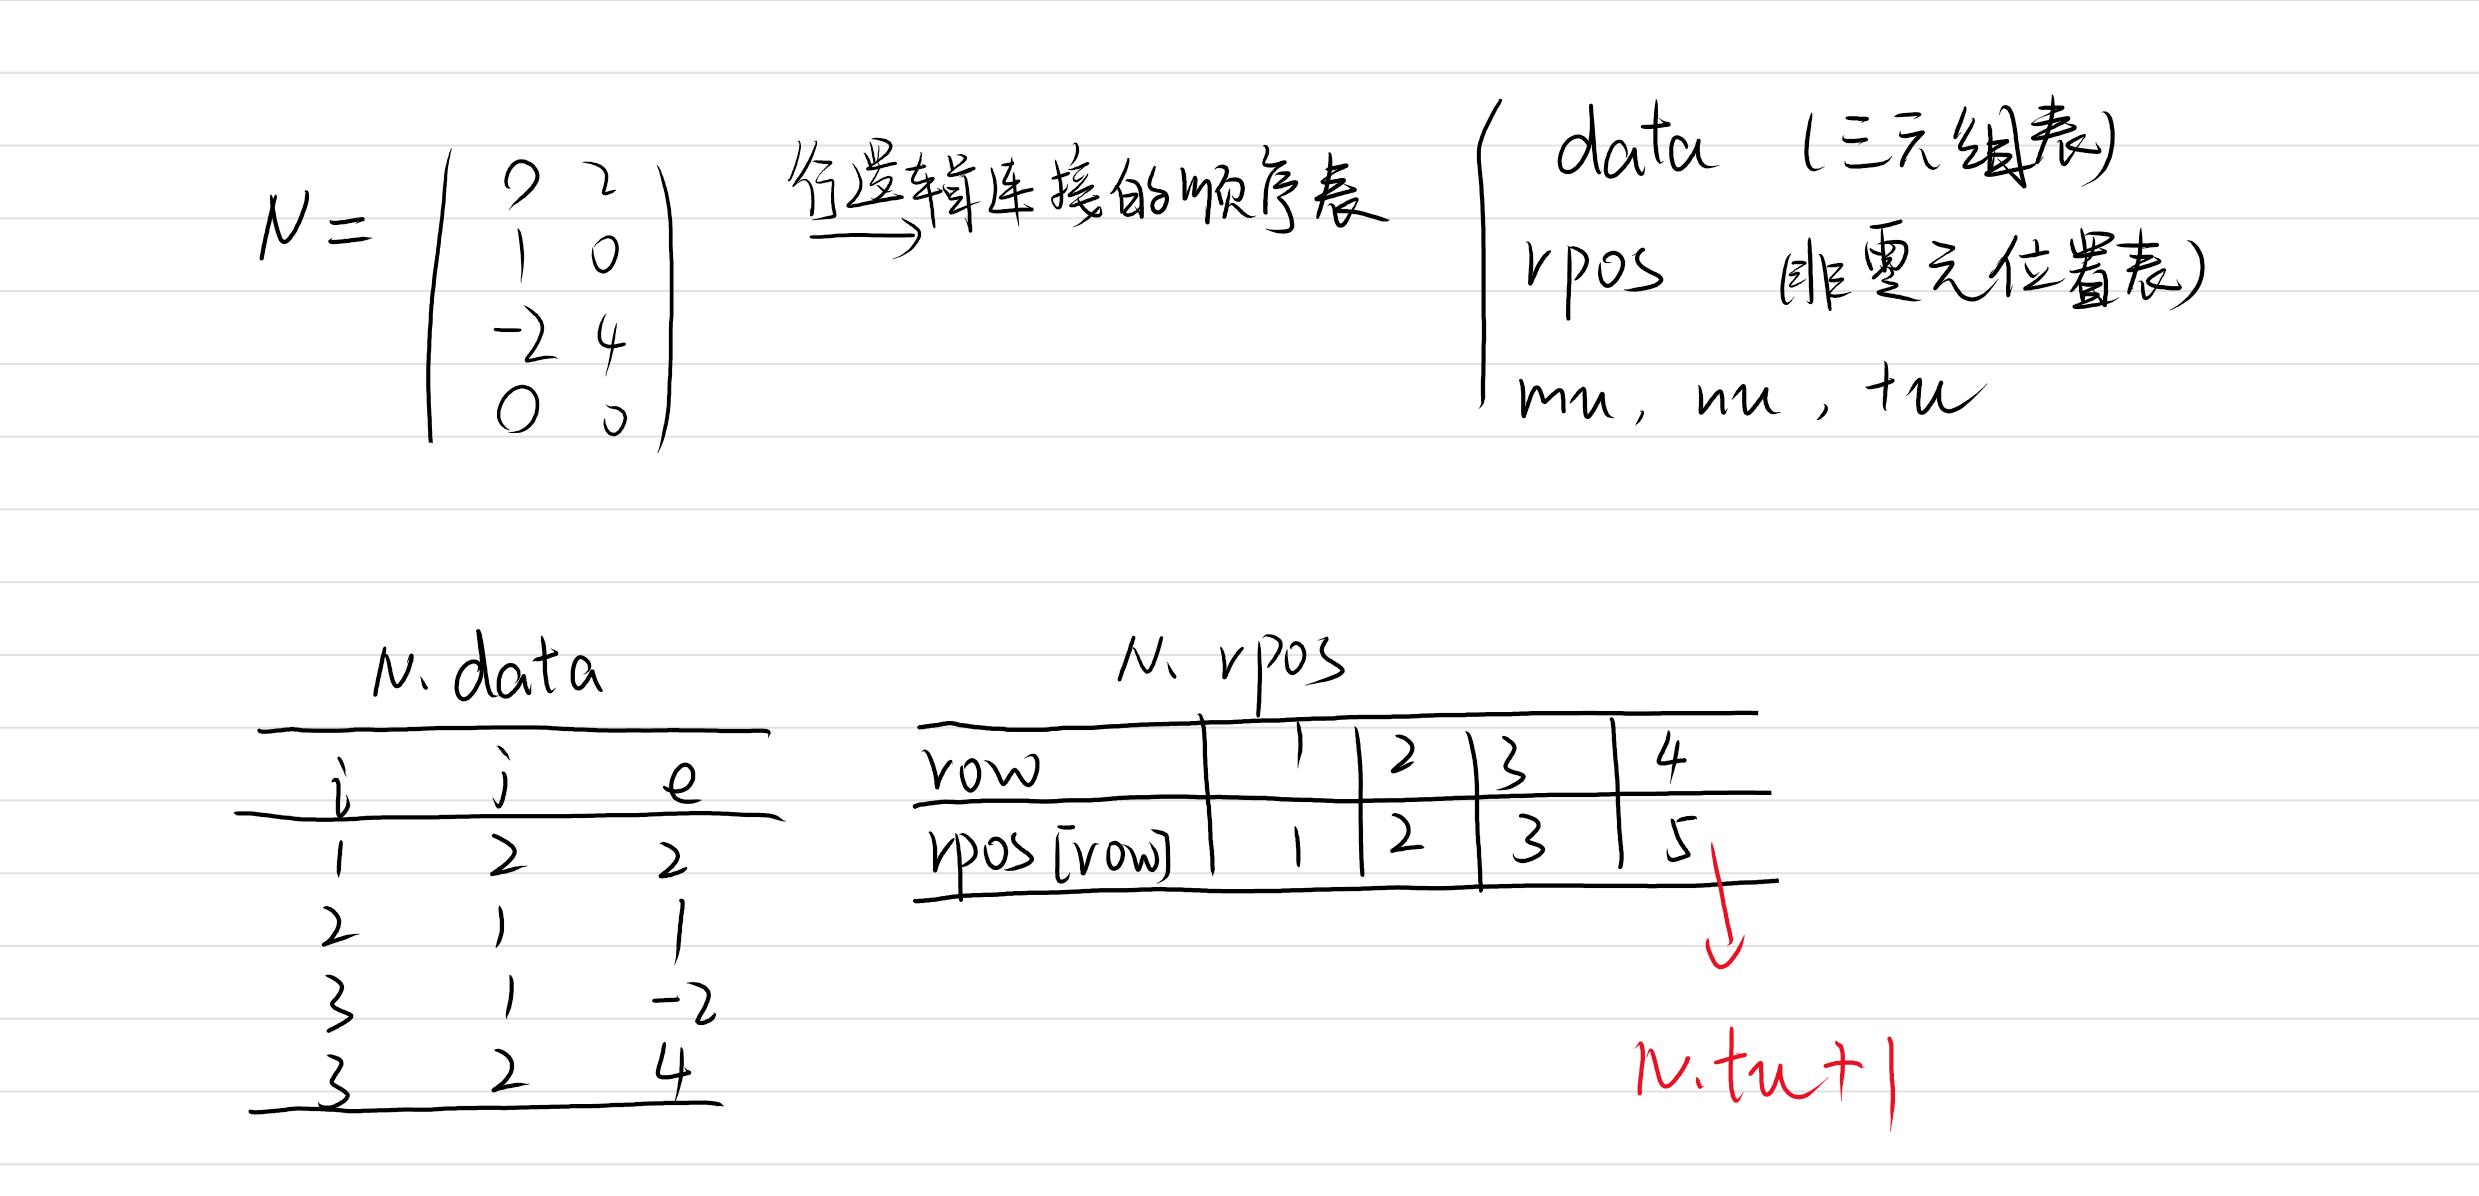 N = ( 0 2
1 0
-2 4
0 0 )
行逻辑连接的顺序表
data (三元组表)
rpos (非零元位置表)
mu, nu, tu
N.data
i j e
1 2 2
2 1 1
3 1 -2
3 2 4
N.rpos
row 1 2 3 4
rpos[row] 1 2 3 5
N.tu+1